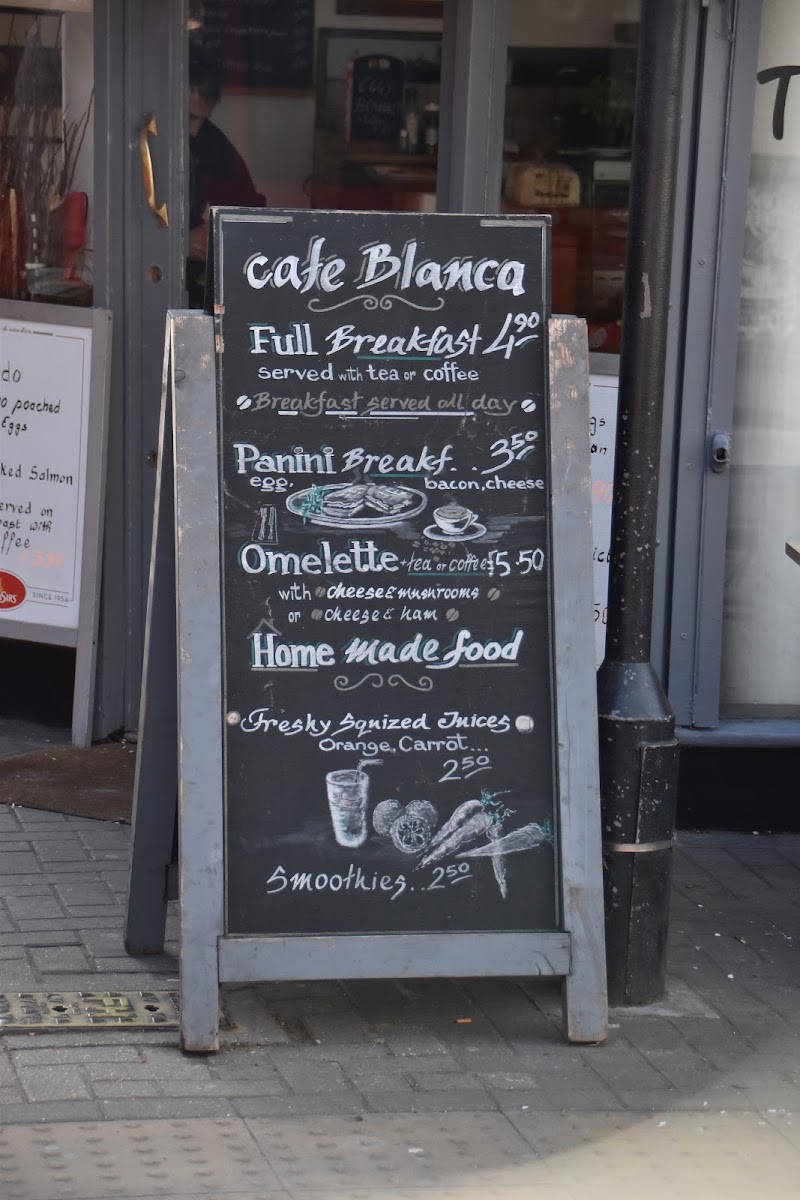 cafe Blanca
Full Breakfast 4.90
served with tea or coffee
Breakfast served all day
Panini Breakf.. 3.50
egg, bacon, cheese
Omelette + tea or coffee £5.50
with cheese & mushrooms
or cheese & ham
Home made food
Fresky Squized Juices
Orange, Carrot...
2.50
Smoothies.. 2.50
do
poached
Eggs
ked Salmon
erved on
oast with
ffee
SINCE 1954
T